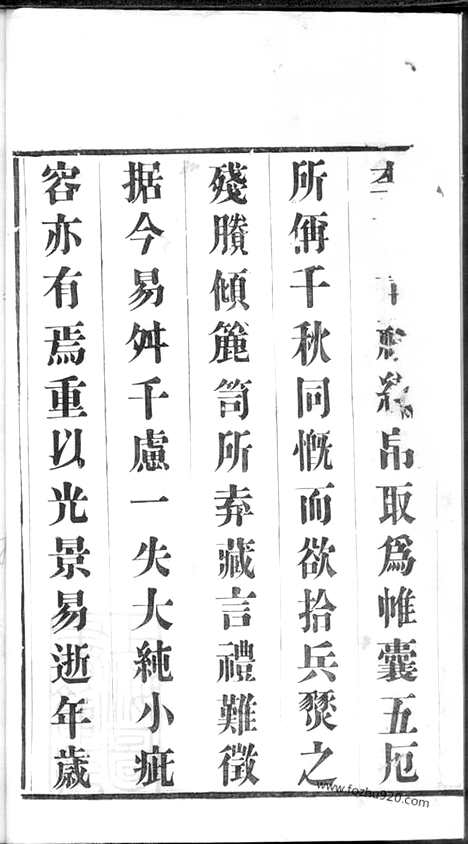 帛取爲帷囊五厄
所俦千秋同慨而欲拾兵燹之
殘賸傾簏笥所弆藏言禮難徵
据今易舛千慮一失大純小疵
容亦有焉重以光景易逝年歲
www.fozhu920.com